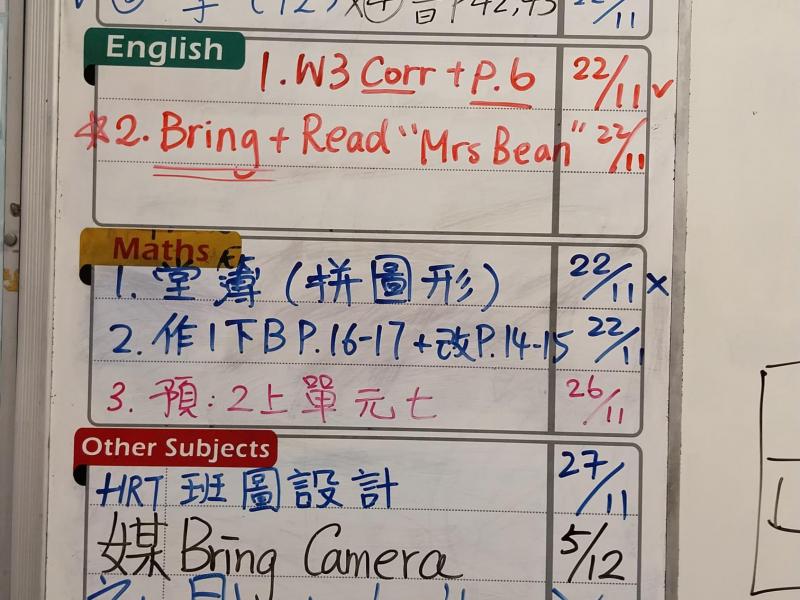 字 (12) x④ 音 P42,43 22/11
English
1. W3 Corr + P.6 22/11 ✓
*2. Bring + Read "Mrs Bean" 22/11
Maths
1. 堂簿 (拼圖形) 22/11 x
2. 作1下B P.16-17 + 改P.14-15 22/11
3. 預: 2上單元七 26/11
Other Subjects
HRT 班圖設計 27/11
媒 Bring Camera 5/12